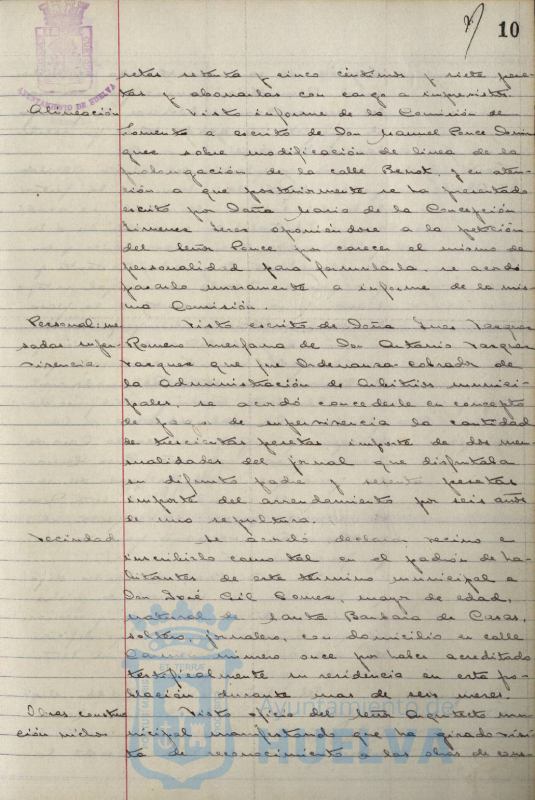 10
AYUNTAMIENTO DE HUELVA
setas setenta y cinco céntimos y siete pese-
tas y abonarlas con cargo a imprevistos.
Alineación Visto informe de la Comisión de
Fomento a escrito de Don Manuel Ponce Domin
guez sobre modificación de linea de la
prolongación de la calle Benot, y en aten-
ción a que posteriormente se ha presentado
escrito por Doña Maria de la Concepción
Jimenez oponiéndose a la petición
del Señor Ponce por carecer el mismo de
personalidad para formularla, se acordó
pasarlo nuevamente a informe de la mis-
ma Comisión.
Personal: me Visto escrito de Doña Ines Vazquez
sadas super- Romero huerfana de Don Antonio Vazquez
vivencia. Vazquez que fue Ordenanza-cobrador de
la Administración de Arbitrios munici-
pales, se acordó concederle en concepto
de pagas de supervivencia la cantidad
de trescientas pesetas importe de dos men-
sualidades del jornal que disfrutaba
su difunto padre y pesetas
importe del arrendamiento por seis años
de una sepultura.
Vecindad Se acordó declarar vecino e
inscribirlo como tal en el padrón de ha-
bitantes de este término municipal a
Don José Gil Gomez, mayor de edad,
natural de Santa Barbara de Casas,
soltero, jornalero, con domicilio en calle
Carmen número once por haber acreditado
testificalmente su residencia en esta po-
blación durante mas de seis meses.
Obras construc Visto oficio del Señor Arquitecto mu-
ción nichos nicipal manifestando que ha girado visi-
ta de reconocimiento a las obras de cons-
Ayuntamiento de
HUELVA